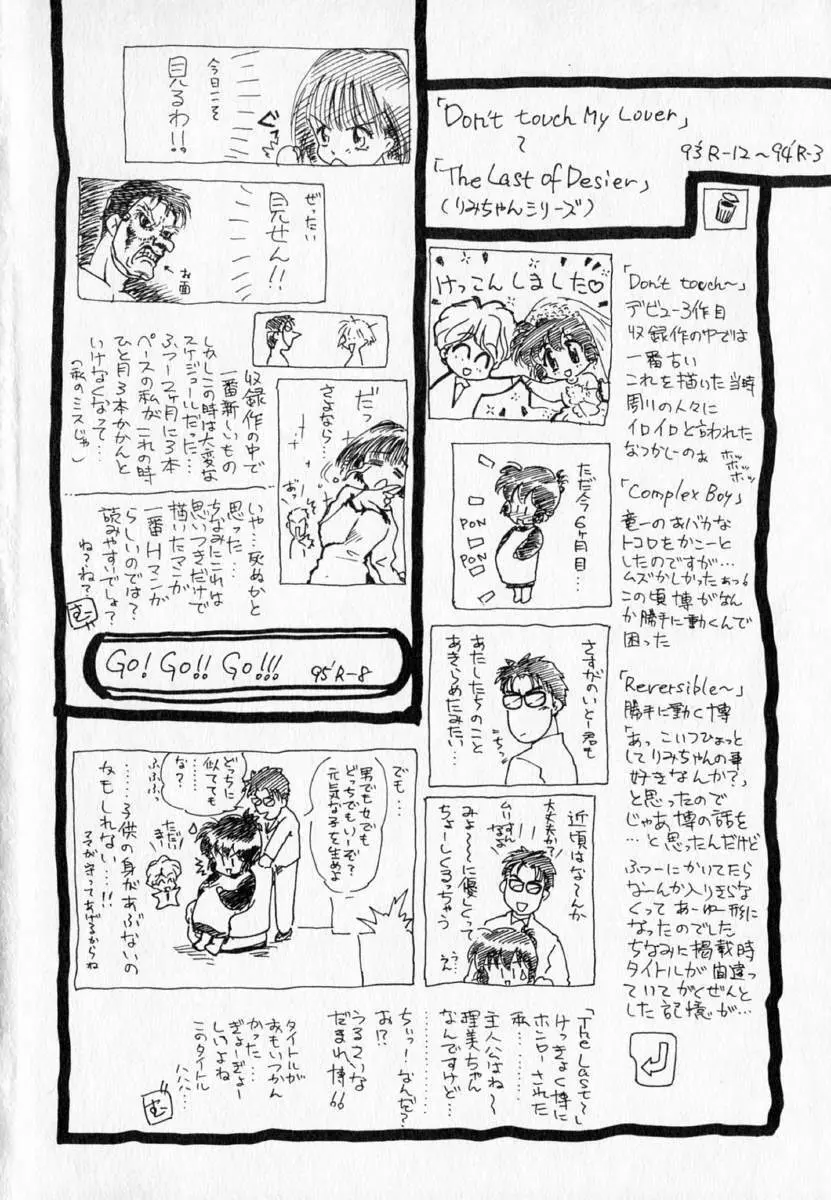 「Don't touch My Lover」
〜
「The Last of Desier」
(りみちゃんシリーズ)
93'R-12〜94'R-3
「Don't touch〜」
デビュー3作目
収録作の中では
一番古い
これを描いた当時
周りの人々に
イロイロと言われた
なつかしーのぉ
ホッ
ホッ
ホッ
「Complex Boy」
竜一のおバカな
トコロをかこーと
したのですが…
ムズかしかったぁっ。
この頃博がなん
か勝手に動くんで
困った
「Reversible〜」
勝手に動く博
「あっこいつひょっと
してりみちゃんの事
好きなんか?」
と思ったので
じゃあ博の話を
…と思ったんだけど
ふつーにかいてたら
なーんか入りきらな
くってあーゆー形に
なったのでした
ちなみに掲載時
タイトルが間違っ
ていてがくぜんと
した記憶が…
けっこんしました♡
ただ今6ヶ月目…
PON
PON
さすがのいとー君も
あたしたちのこと
あきらめたみたい…
近頃はな〜んか
みょ〜〜に優しくって
ちょーしくるっちゃう
大丈夫か?
ムリすん
なよ
うん
「The Last〜」
けっきょく博に
ホンローされた
私…
主人公はね〜
理美ちゃん
なんですけど…
ちぃっ!なんだ?
お!?
うるさいな
だまれ博!!
タイトルが
おもいつかん
かった…
ぎょーぎょー
しいよね
このタイトル
ハハハ…
でも…
男でも女でも
どっちでもいーぞ?
元気な子を生めよ
どっちに
似てても
な?
ふふふっ
ただい
まー
……子供の身があぶないの
かもしれない…!!
ママが守ってあげるからね
今日こそ
見るわ!!
ぜったい
見せん!!
お面
だっ
さよなら…
おーっ
収録作の中で
一番新しいもの
しかしこの時は大変な
スケジュールだった…
ふつー2ヶ月に3本
ペースの私がこれの時
ひと月3本かかんと
いけなくなって…
(私のミスじゃ)
いや…死ぬかと
思った…
ちなみにこれは
思いつきだけで
描いたマンガ
一番Hマンガ
らしいのでは?
読みやすいでしょ?
ね?ね?
Go! Go!! Go!!! 95'R-8